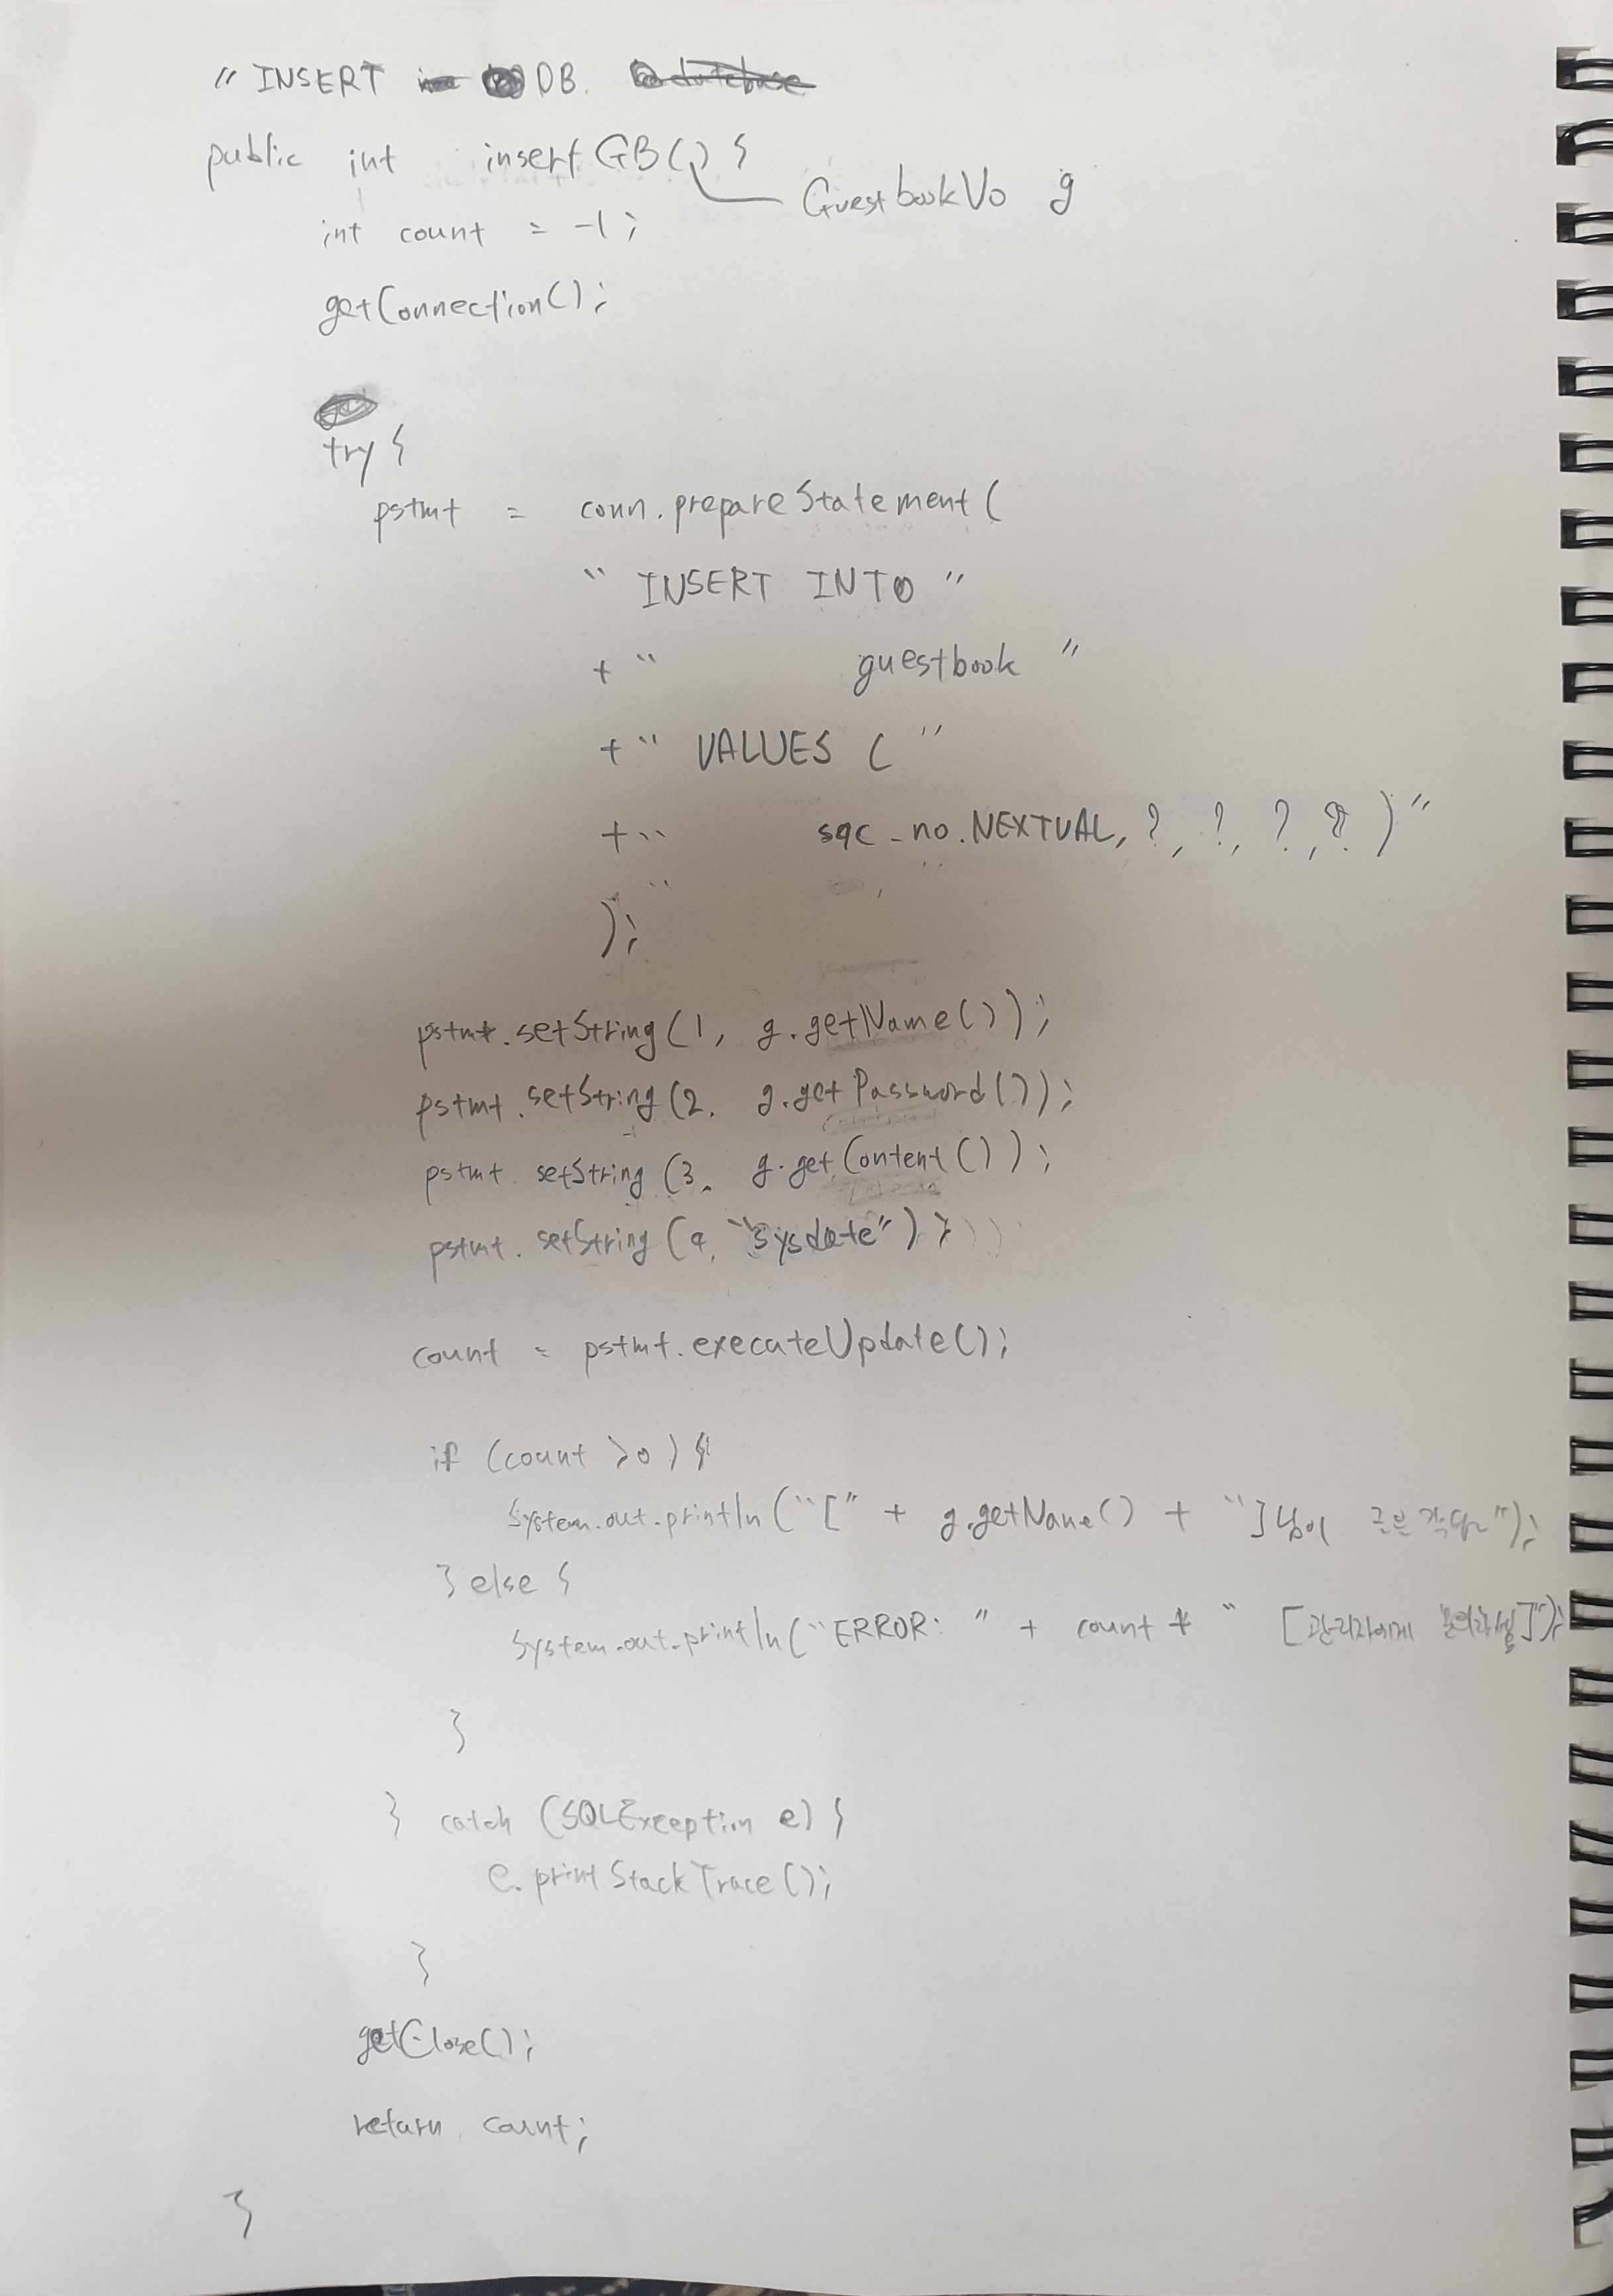 // INSERT DB.
public int insertGB() {
GuestbookVo g
int count = -1;
getConnection();
try {
pstmt = conn.prepareStatement(
" INSERT INTO "
+ " guestbook "
+ " VALUES ( "
+ " sqc_no.NEXTVAL, ?, ?, ?, ? ) "
);
pstmt.setString(1, g.getName());
pstmt.setString(2, g.getPassword());
pstmt.setString(3, g.getContent());
pstmt.setString(4, "sysdate");
count = pstmt.executeUpdate();
if (count >0) {
System.out.println("[" + g.getName() + "]님이
} else {
System.out.println("ERROR: " + count + " [관리자에게
}
} catch (SQLException e) {
e.printStackTrace();
}
getClose();
return count;
}